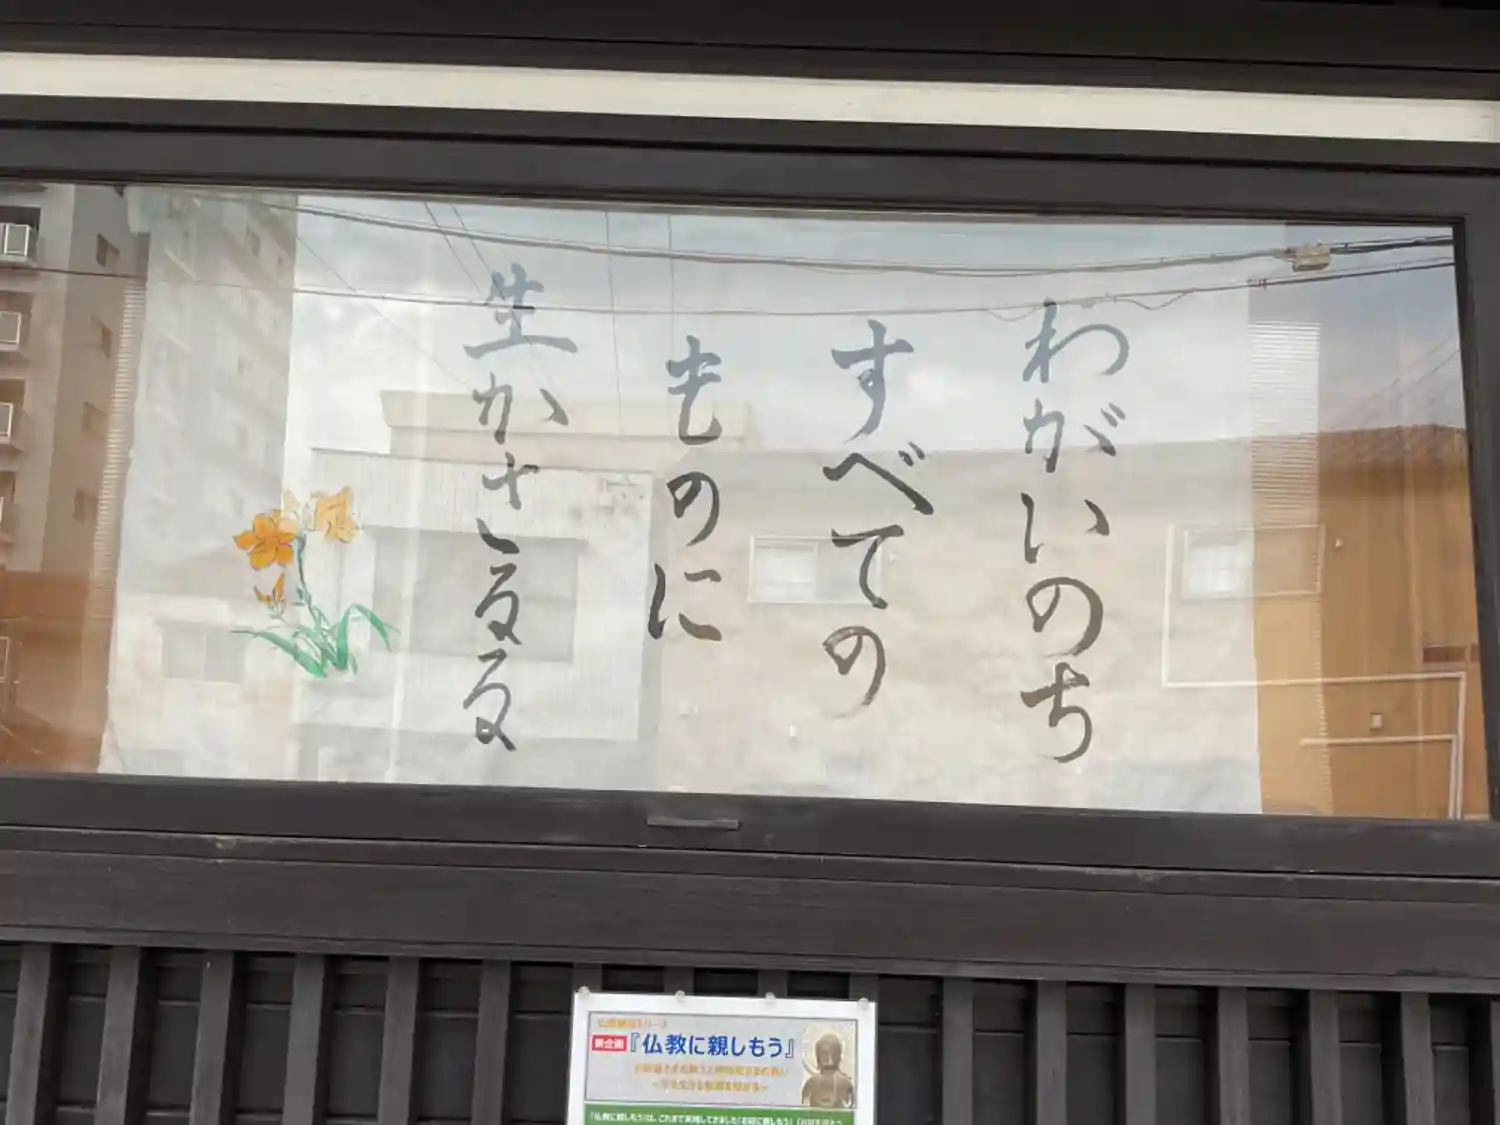 わがいのち
すべての
ものに
生かさるる
新企画
『仏教に親しもう』